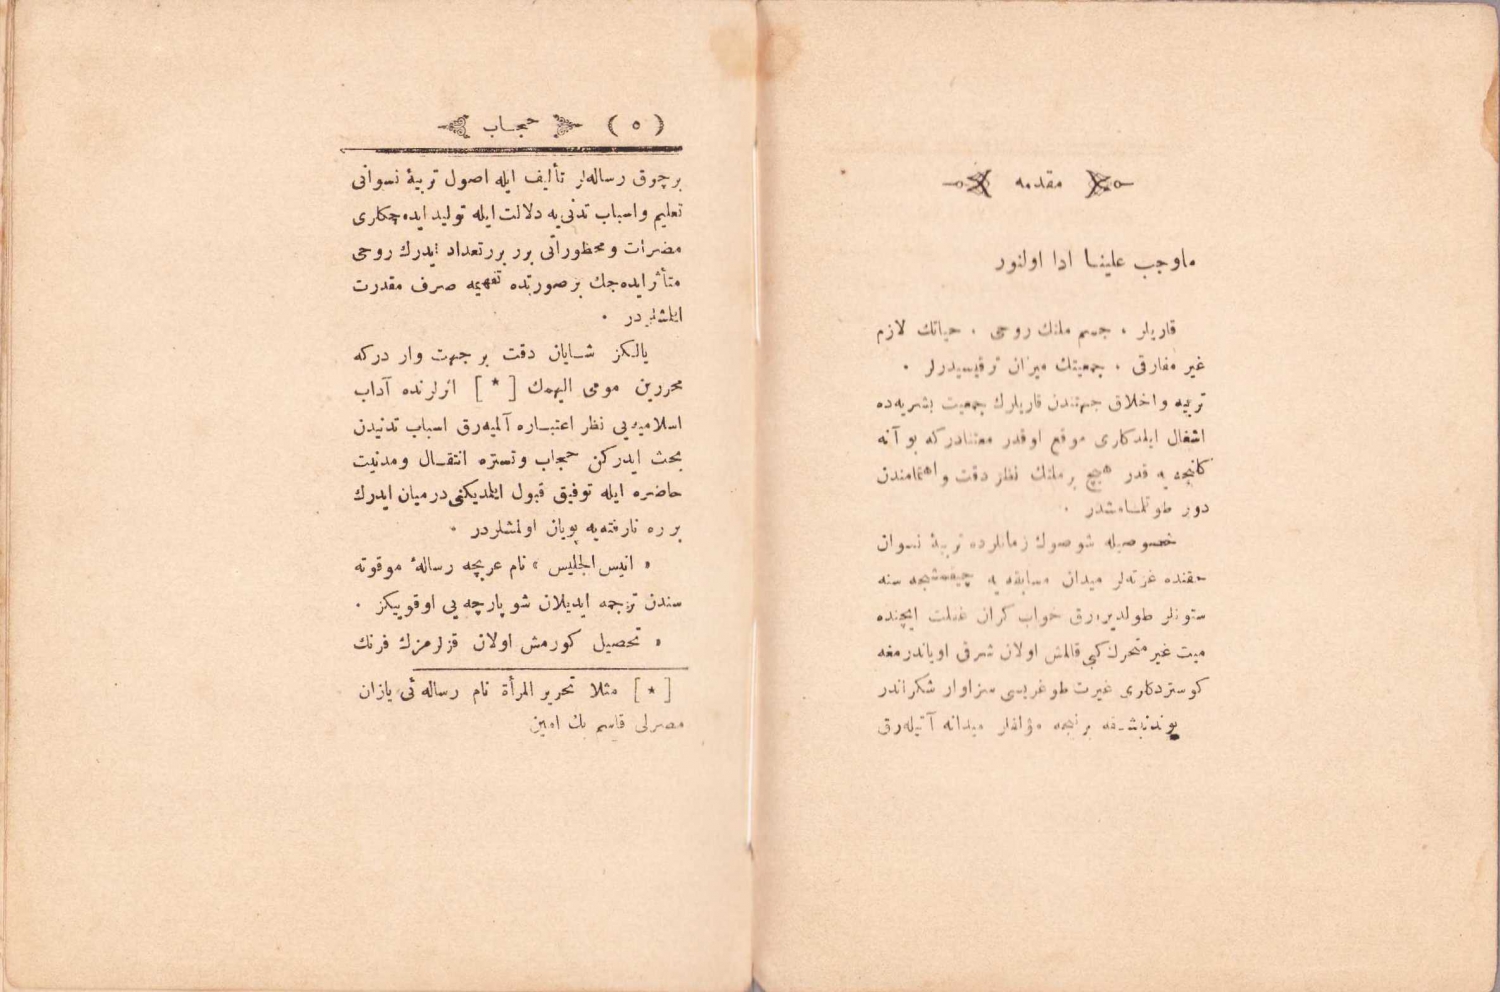 مقدمه
ماوجب علینـا ادا اولنور
قاریلر ، جسم ملتك روحی ، حیاتك لازم
غیر مفارقی ، جمعیتك میزان ترقیسیدرلر .
تربیه و اخلاق جهتندن قاریلرك جمعیت بشریه‌ده
اشغال ایلدکاری موقع اوقدر معتنادرکه بو آنه
کلنجه یه قدر هیچ بر ملتك نظر دقت و اهتمامندن
دور طوتلمـامشدر .
خصوصیله شو صوك زمانلرده تربیۀ نسوان
حقنده غزته‌لر میدان مسابقه یه چیقمشجه سنه
ستونلر طولدیره‌رق خواب کران غفلت ایچنده
میت غیر متحرك کبی قالمش اولان شرقی اویاندرمغه
کوستردکاری غیرت طوغریسی سزاوار شکراندر
بوندنبشـقه برنیجه مؤلفلر میدانه آتیله‌رق
( ٥ ) حجـاب
برچوق رساله‌لر تألیف ایله اصول تربیۀ نسوانی
تعلیم و اسباب تدنی یه دلالت ایله تولید ایده‌جکاری
مضرات و محظوراتی برر برر تعداد ایدرك روحی
متأثر ایده‌جك بر صورتده تفهیمه صرف مقدرت
ایلمشلردر .
یالکز شـایان دقت بر جهت وار درکه
محررین مومی الیهمك [ * ] اثرلرنده آداب
اسلامیه‌یی نظر اعتبـاره آلمیه‌رق اسباب تدنیدن
بحث ایدرکن حجاب و تستره انتقـال و مدنیت
حاضره ایله توفیق قبول ایلمدیکنی درمیان ایدرك
بر ره نارفته‌یه پویان اولمشلردر .
« انیس الجلیس » نام عربجه رسالۀ موقوته
سندن ترجمه ایدیلان شو پارچه یی اوقوییکز .
« تحصیل کورمش اولان قزلرمزك فرنك
[ * ] مثلا تحریر المرأة نام رساله ئی یازان
مصرلی قاسم بك امین